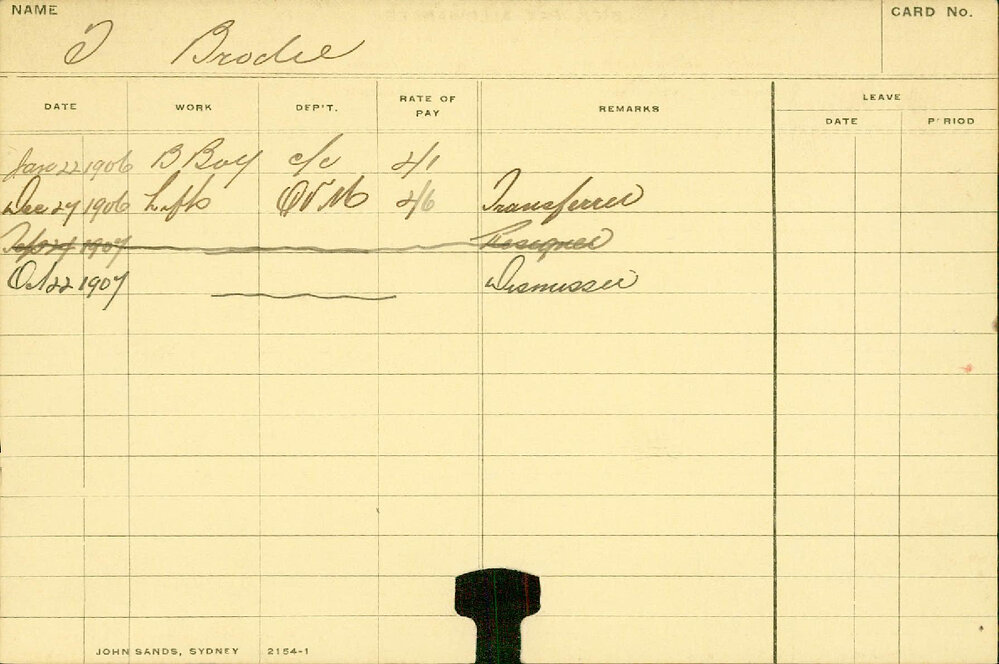 NAME
CARD No.
J Brodie
LEAVE
DATE WORK DEP'T. RATE OF PAY REMARKS DATE PERIOD
Jan 22 1906 B Boy c/c 2/1
Dec 27 1906 Lifts QVM 2/6 Transferred
1907 Resigned
Oct 22 1907 Dismissed
JOHN SANDS, SYDNEY 2154-1